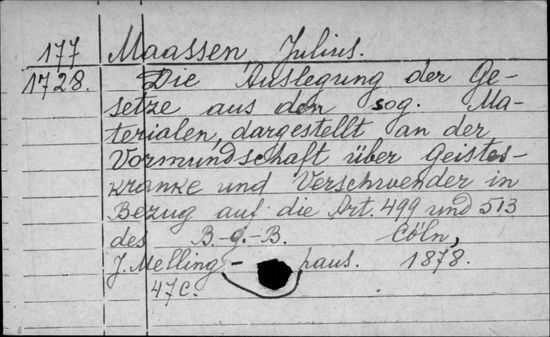 177 Maassen Julius.
1728. Die Auslegung der Ge-
setze aus den sog. Ma-
terialen, dargestellt an der
Vormundschaft über Geistes-
kranke und Verschwender in
Bezug auf die Art. 499 und 513
des B.-g.-B. Cöln,
J. Melling-haus. 1878.
47c.